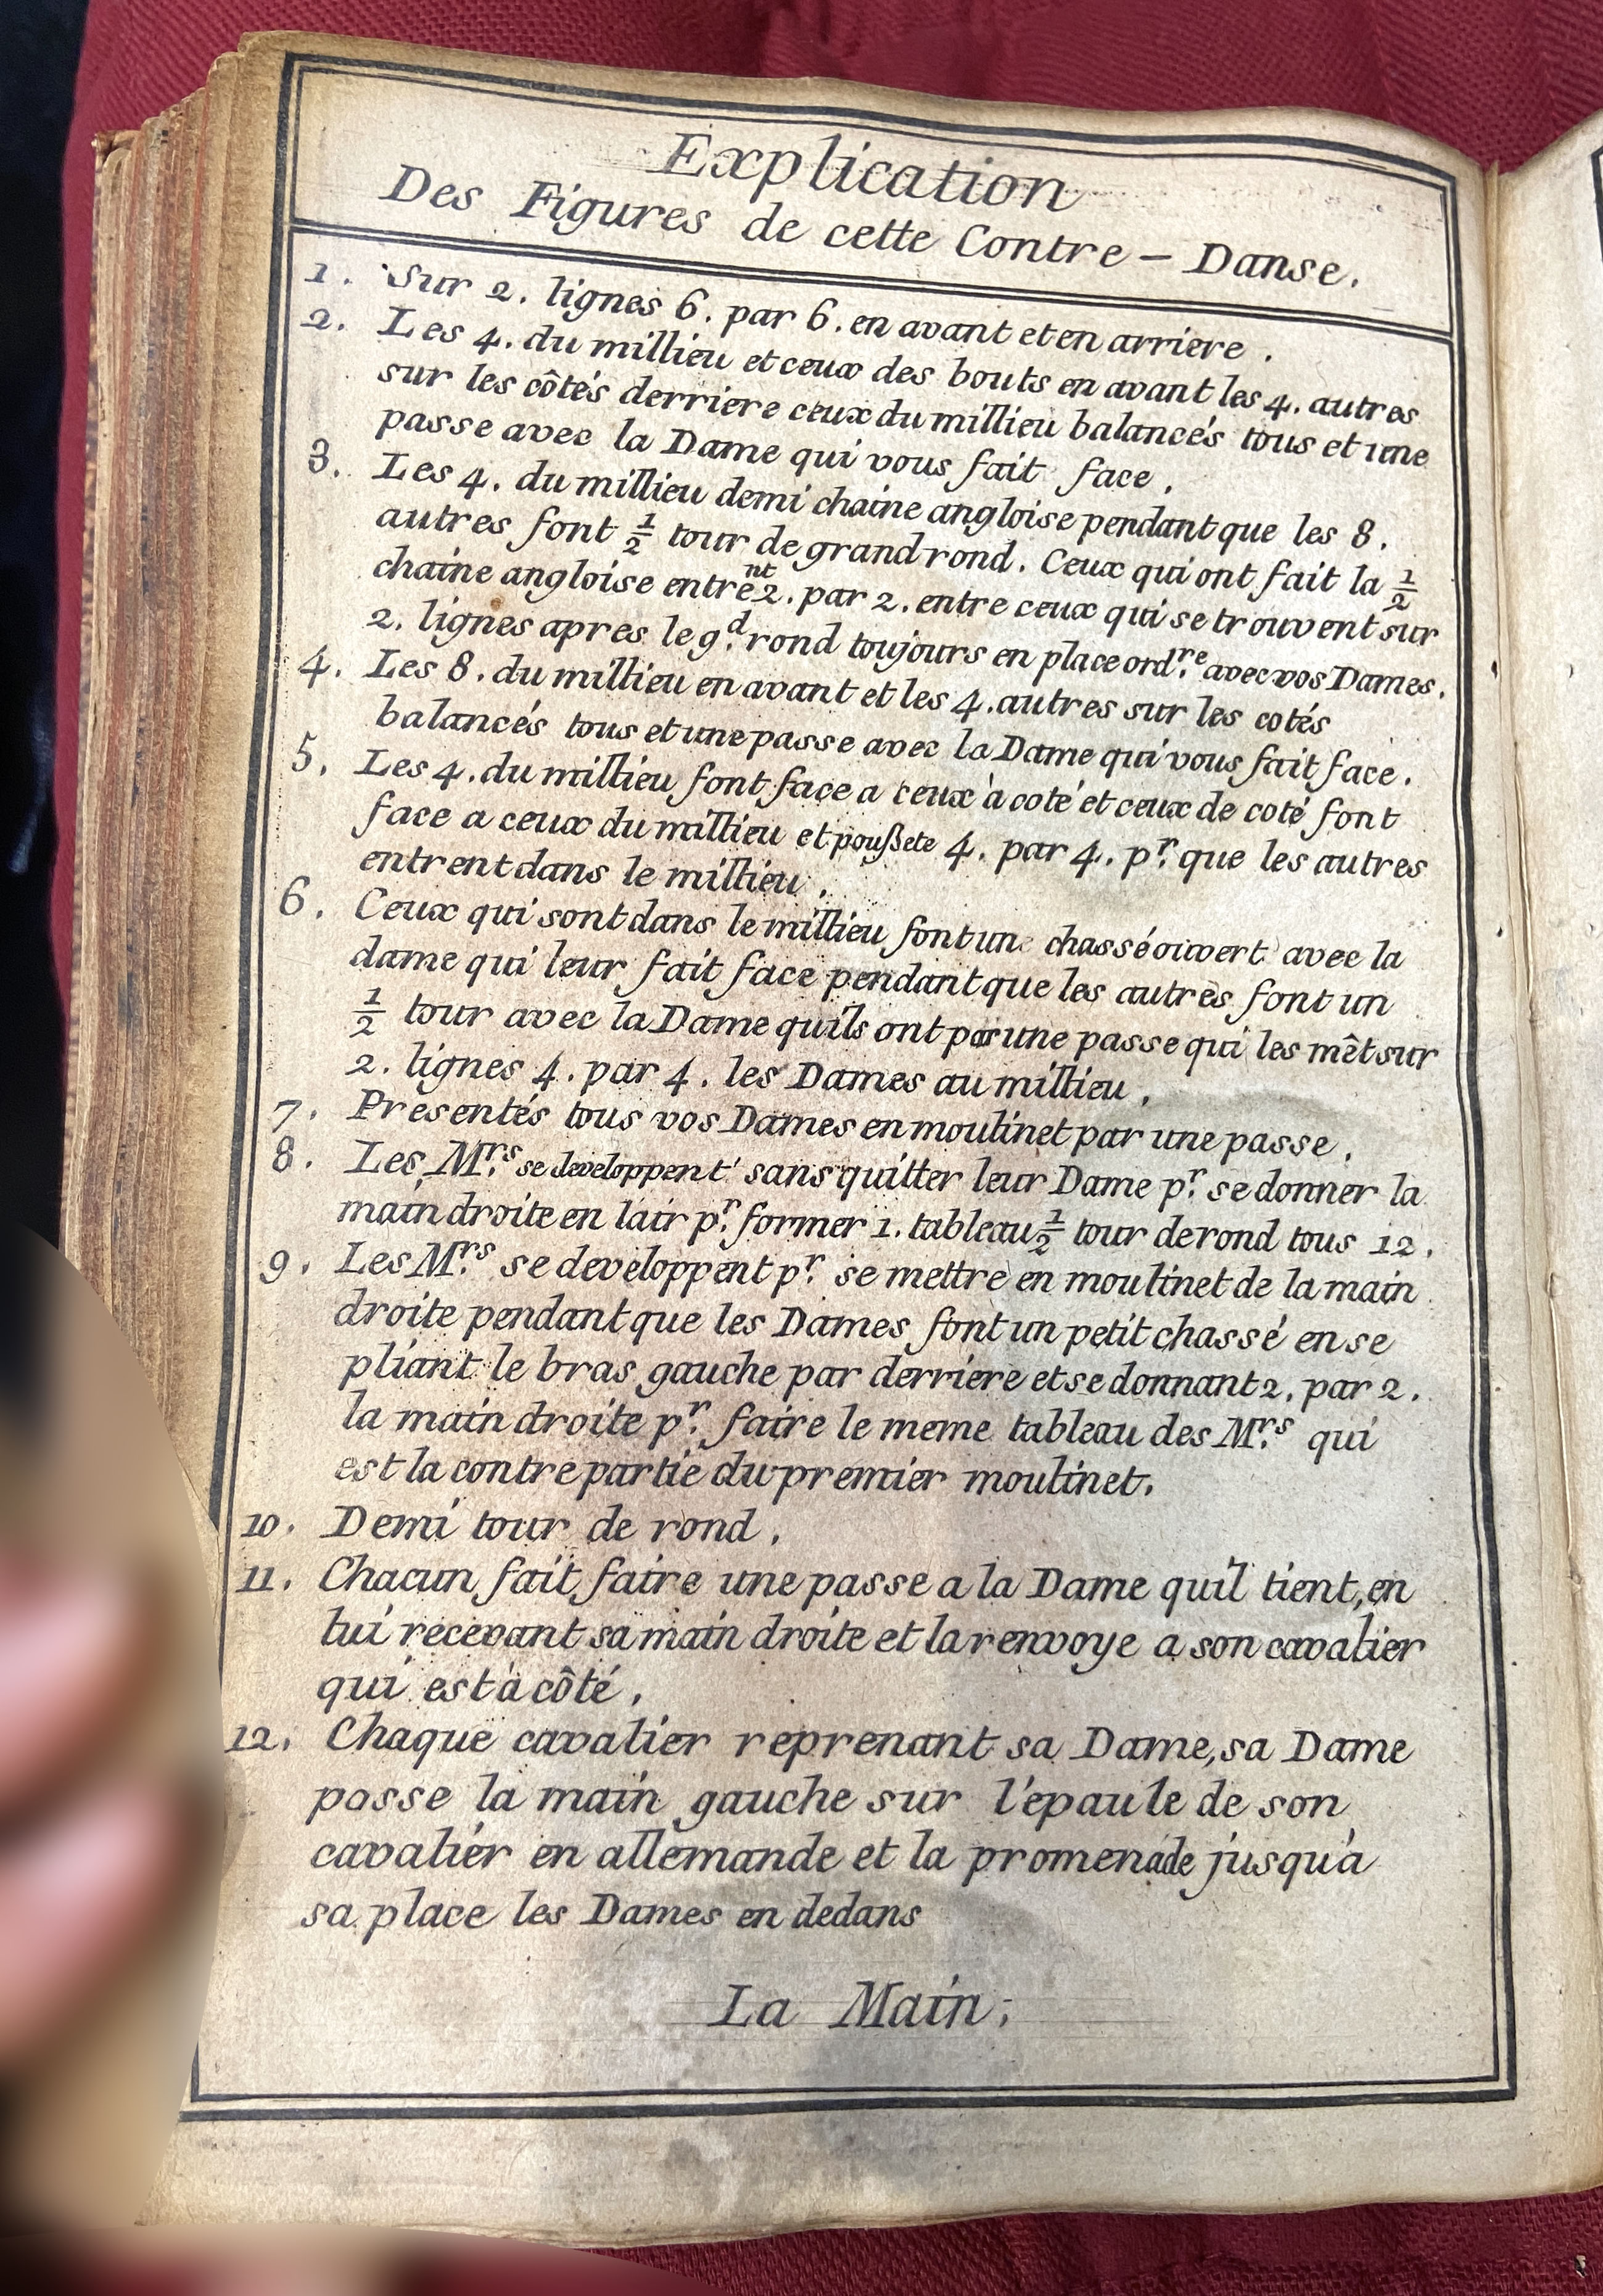 Explication
Des Figures de cette Contre - Danse.
1. Sur 2. lignes 6. par 6. en avant et en arriere.
2. Les 4. du millieu et ceux des bouts en avant les 4. autres
sur les côtés derriere ceux du millieu balancés tous et une
passe avec la Dame qui vous fait face.
3. Les 4. du millieu demi chaine angloise pendant que les 8.
autres font 1/2 tour de grand rond. Ceux qui ont fait la 1/2
chaine angloise entrent 2. par 2. entre ceux qui se trouvent sur
2. lignes apres le gd. rond toujours en place ordre. avec vos Dames.
4. Les 8. du millieu en avant et les 4. autres sur les cotés
balancés tous et une passe avec la Dame qui vous fait face.
5. Les 4. du millieu font face a ceux à coté et ceux de coté font
face a ceux du millieu et poußete 4. par 4. pr. que les autres
entrent dans le millieu.
6. Ceux qui sont dans le millieu font une chassé ouvert avec la
dame qui leur fait face pendant que les autres font un
1/2 tour avec la Dame quils ont par une passe qui les mêt sur
2. lignes 4. par 4. les Dames au millieu.
7. Presentés tous vos Dames en moulinet par une passe.
8. Les Mrs. se developpent sans quitter leur Dame pr. se donner la
main droite en lair pr. former 1. tableau 1/2 tour de rond tous 12.
9. Les Mrs. se developpent pr. se mettre en moulinet de la main
droite pendant que les Dames font un petit chassé en se
pliant le bras gauche par derriere et se donnant 2. par 2.
la main droite pr. faire le meme tableau des Mrs. qui
est la contre partie du premier moulinet.
10. Demi tour de rond.
11. Chacun fait faire une passe a la Dame quil tient, en
lui recevant sa main droite et la renvoye a son cavalier
qui est à côté.
12. Chaque cavalier reprenant sa Dame, sa Dame
passe la main gauche sur l'épaule de son
cavalier en allemande et la promenade jusqu'à
sa place les Dames en dedans
La Main.